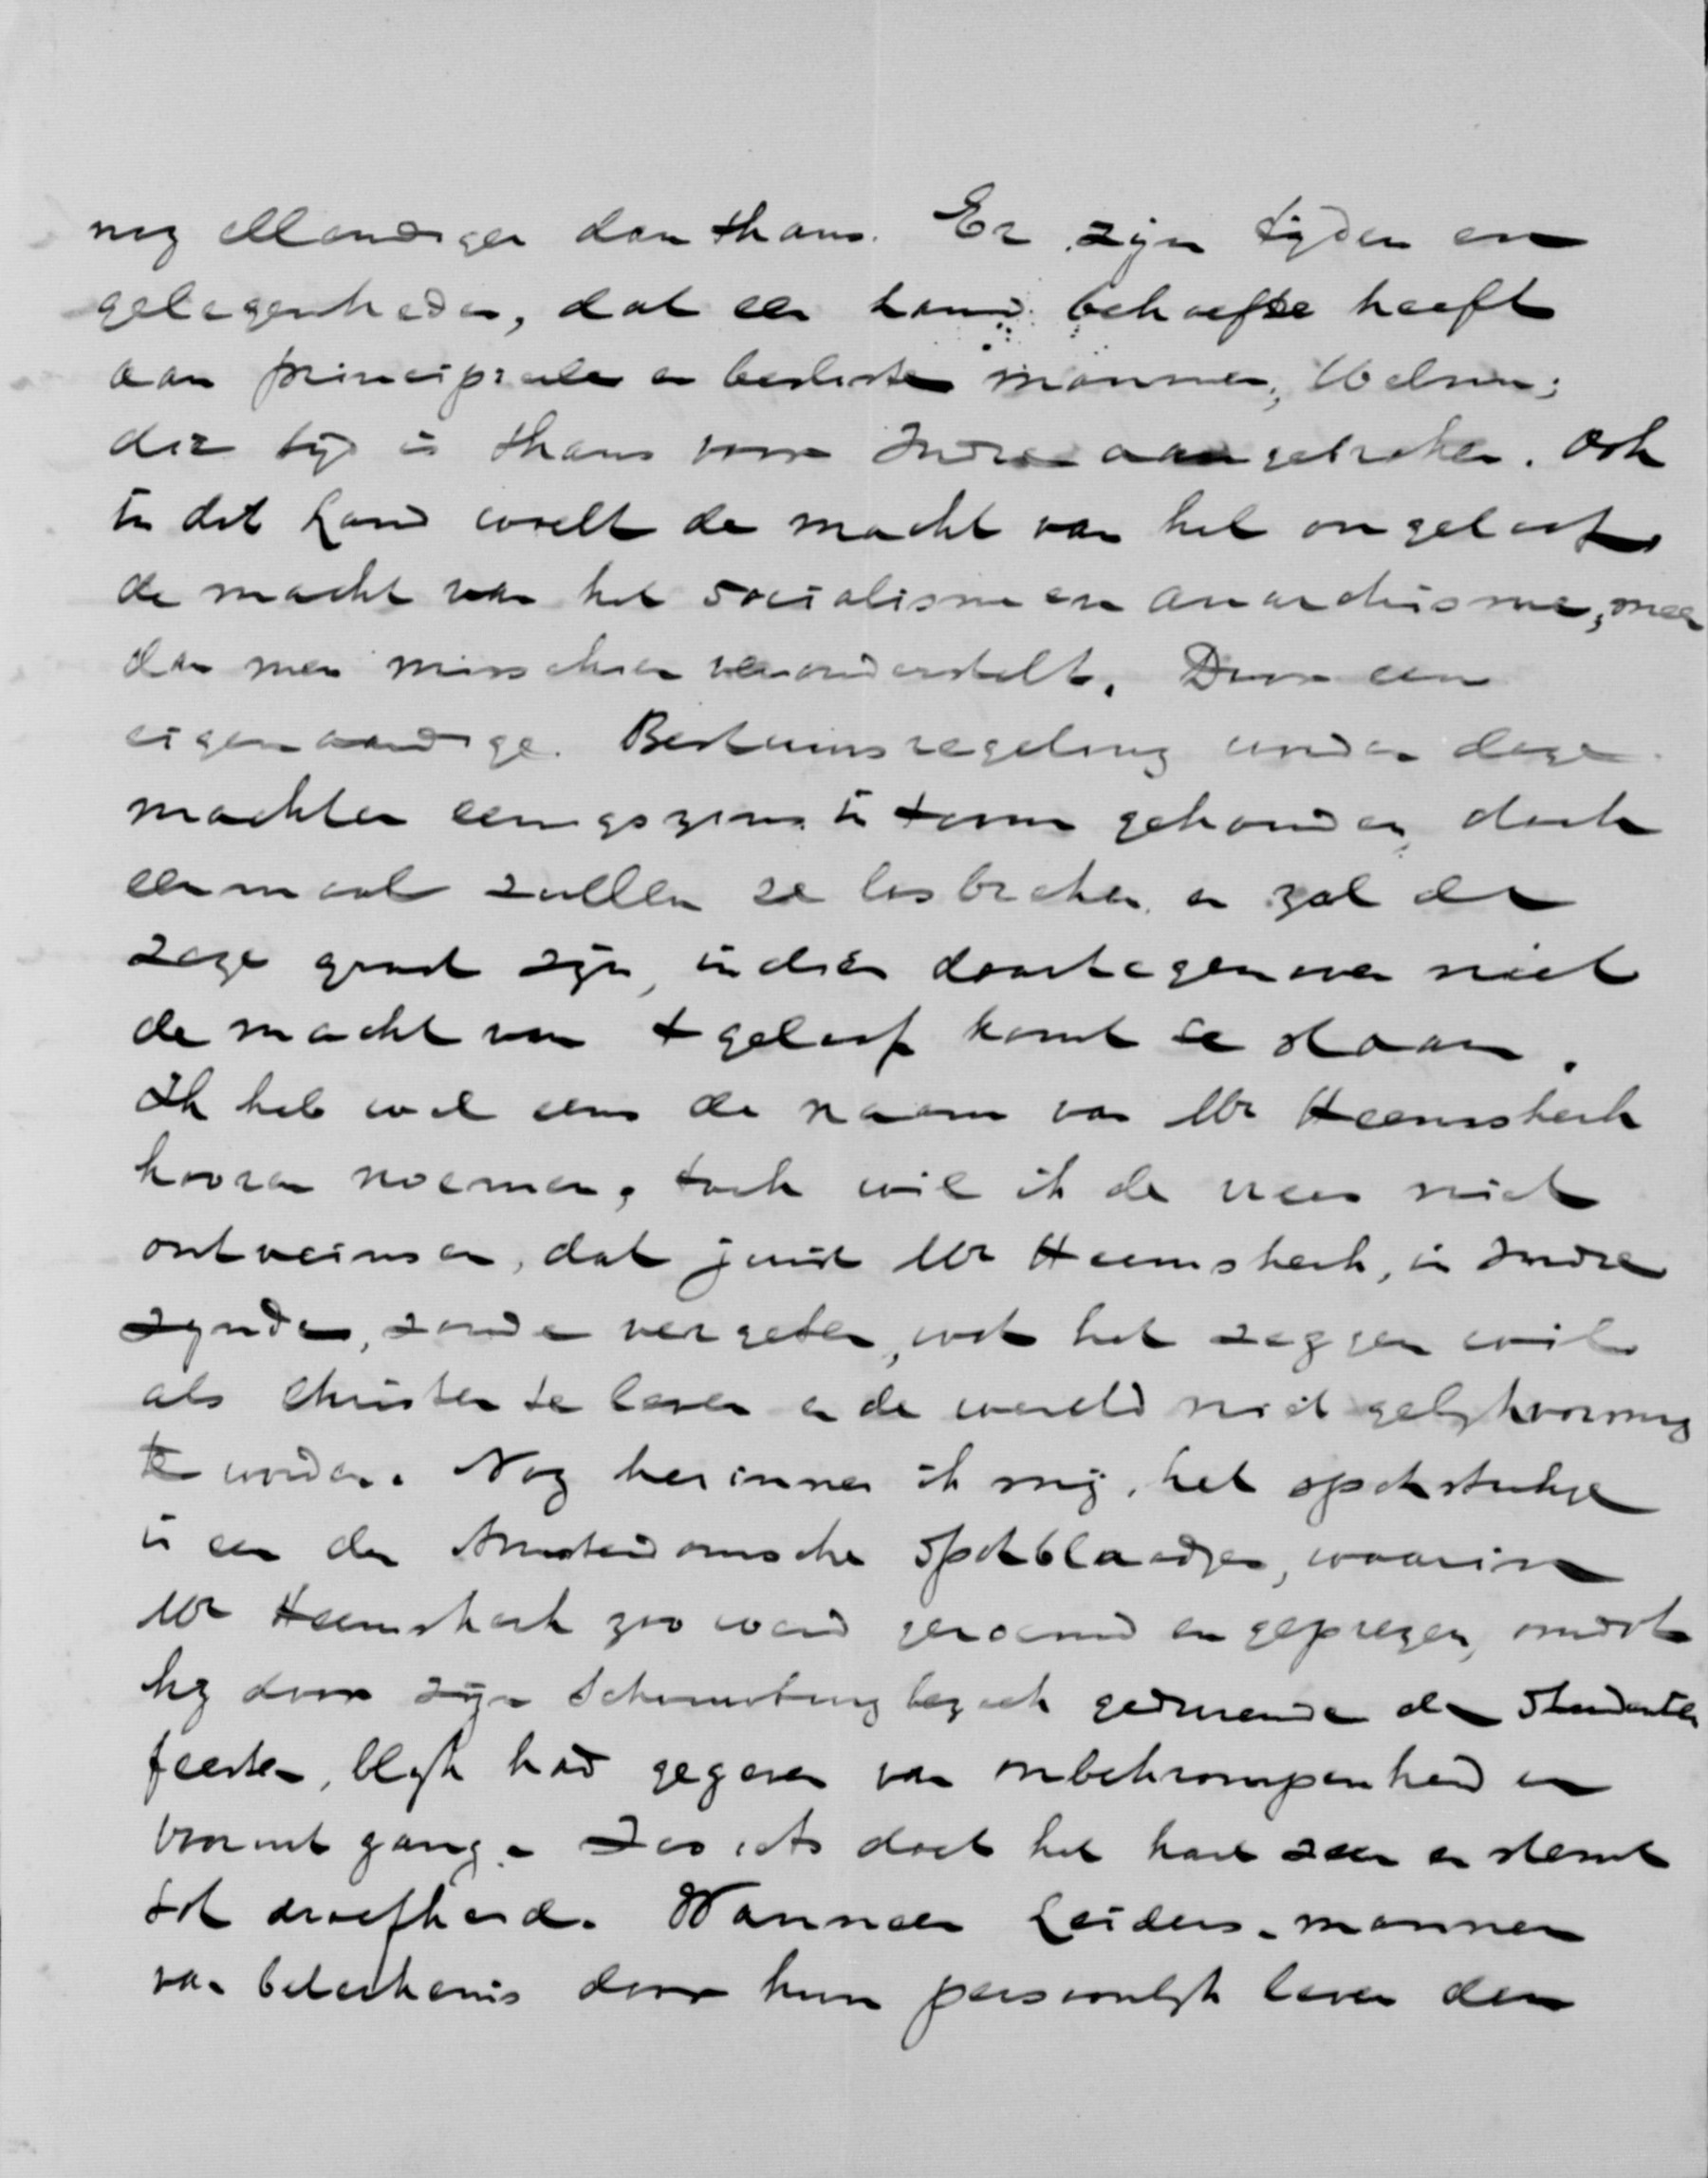 nog ellendiger dan thans. Er zijn tyden en
gelegenheden, dat een land behoefte heeft
aan principieele en besliste mannen,
die tijd is thans voor Indië aangebroken. Ook
in dit Land woelt de macht van het ongeloof
de macht van het socialisme en anarchisme, meer
dan men misschien veronderstelt. Door een
eigenaardige Bestuursregeling worden deze
machten eenigszins in toom gehouden, doch
eenmaal zullen ze losbreken en zal de
zege groot zijn, indien daartegenover niet
de macht van t geloof komt te staan.
Ik heb wel eens de naam van Mr Heemskerk
hooren noemen, toch wil ik de vrees niet
ontveinzen, dat juist Mr Heemskerk, in Indië
zynde, zoude vergeten, wat het zeggen wil
als Christen te leven en de wereld niet gelykvormig
te worden. Nog herinner ik mij, het spotstukje
in een der Amsterdamsche Spotblaadjes, waarin
Mr Heemskerk zoo werd geroemd en geprezen, omdat
hy door zijn Schouwburg bezoek gedurende de Studenten
feesten, blyk had gegeven van onbekrompenheid en
vooruitgang. Zoo iets doet het hart zeer en stemt
tot droefheid. Wanneer Leiders - mannen
van beteekenis door hun persoonlyk leven den